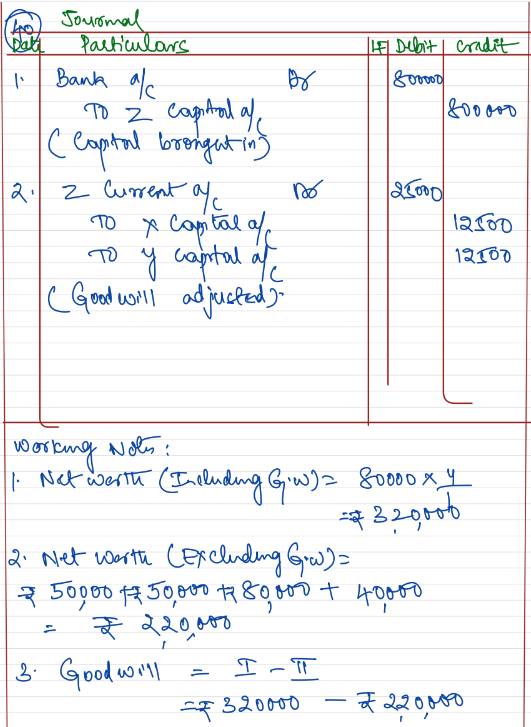 40 Journal
Date Particulars LF Debit Credit
1. Bank a/c Dr 80000
To Z Capital a/c 800000
(Capital brought in)
2. Z Current a/c Dr 25000
To X Capital a/c 12500
To Y Capital a/c 12500
(Goodwill adjusted)
Working Notes:
1. Net worth (Including G.w) = 80000 × 4/1
= ₹ 320,000
2. Net worth (Excluding G.w) =
₹ 50,000 + ₹ 50,000 + ₹ 80,000 + 40,000
= ₹ 220,000
3. Goodwill = I - II
= ₹ 320000 - ₹ 220,000